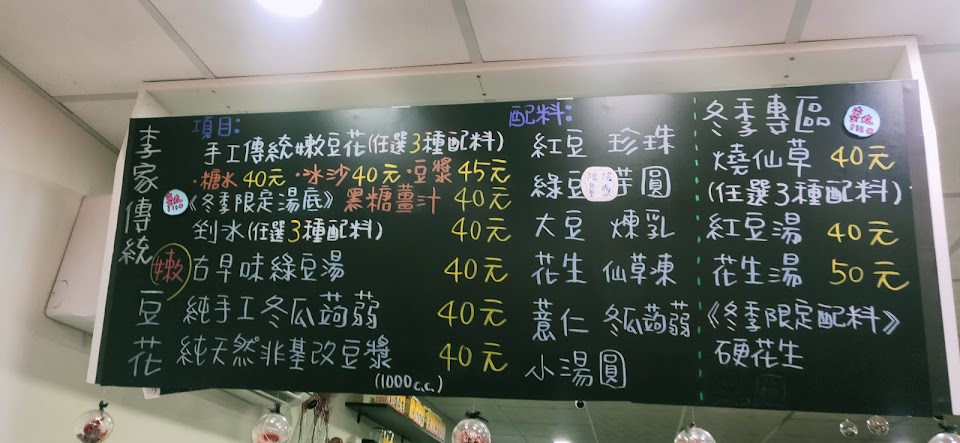 李家傳統嫩豆花
項目:
手工傳統嫩豆花(任選3種配料)
·糖水40元·冰沙40元·豆漿45元
《冬季限定湯底》黑糖薑汁 40元
剉冰(任選3種配料) 40元
古早味綠豆湯 40元
純手工冬瓜蒟蒻 40元
純天然非基改豆漿 40元
(1000c.c.)
配料:
紅豆 珍珠
綠豆 芋圓
大豆 煉乳
花生 仙草凍
薏仁 冬瓜蒟蒻
小湯圓
冬季專區
燒仙草 40元
(任選3種配料)
紅豆湯 40元
花生湯 50元
《冬季限定配料》
硬花生